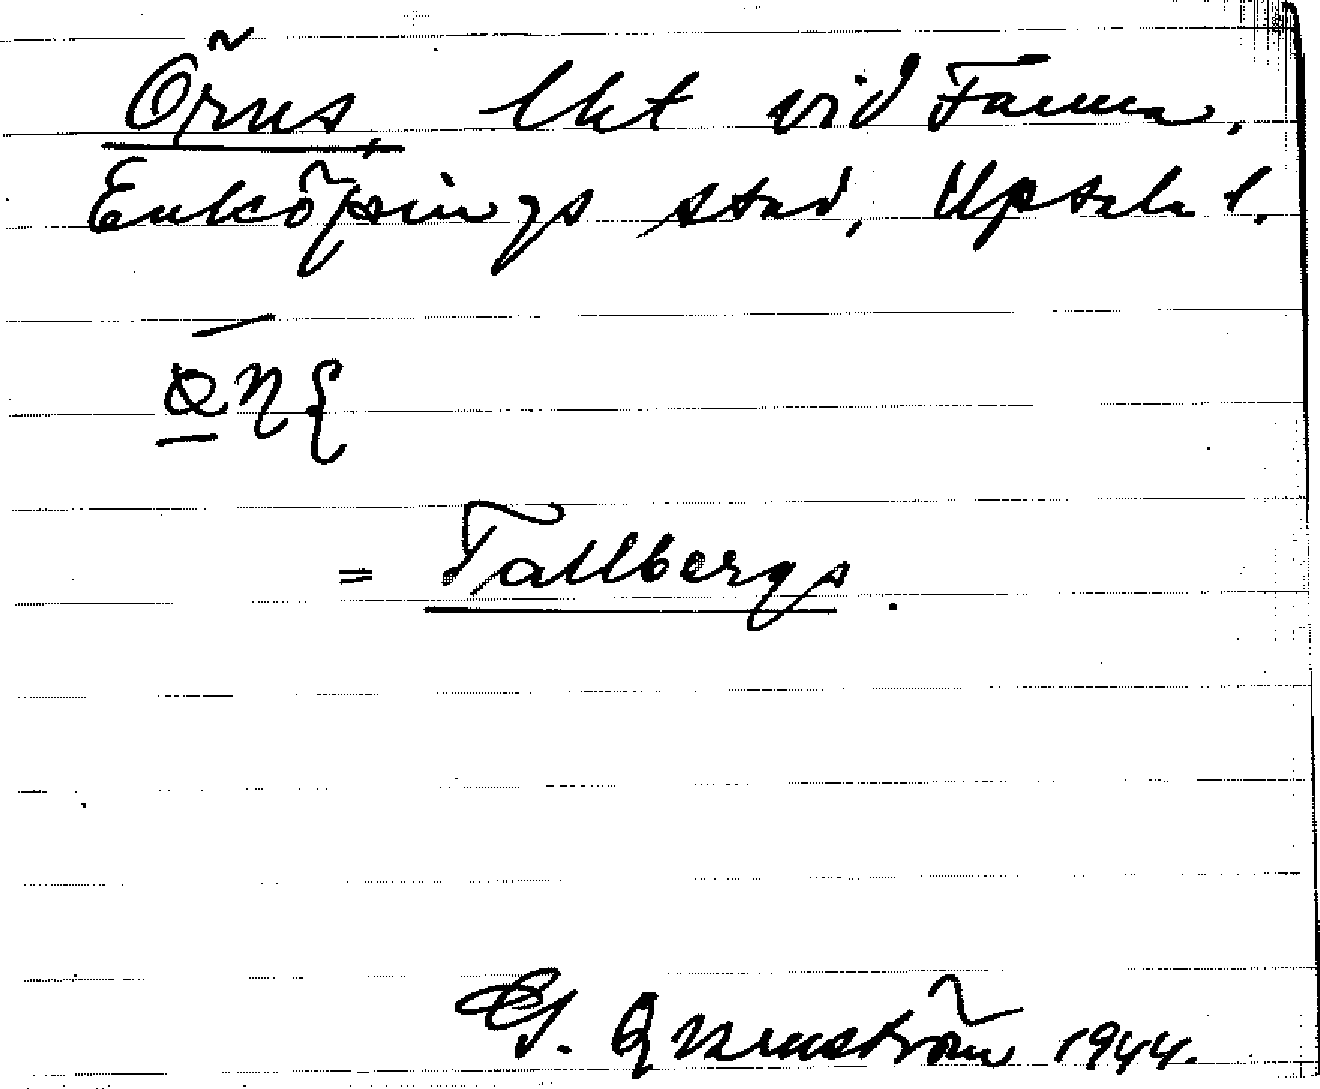 Örns, lht vid Fanna,
Enköpings stad, Uptala l.
= Tallbergs.
G. Qvarnström 1944.